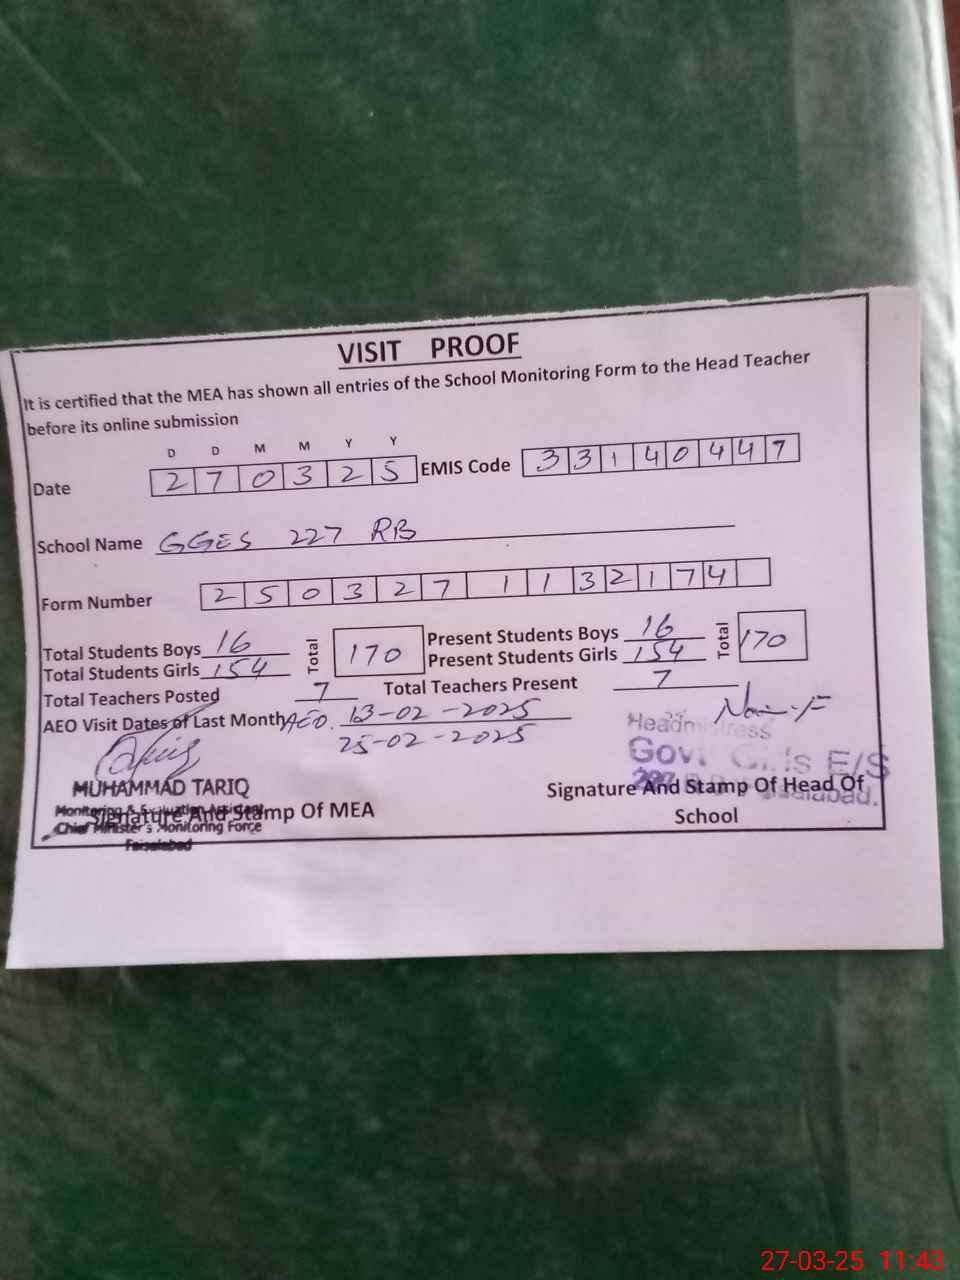 VISIT PROOF
It is certified that the MEA has shown all entries of the School Monitoring Form to the Head Teacher
before its online submission
D D M M Y Y
Date 2 7 0 3 2 5 EMIS Code 3 3 1 4 0 4 4 7
School Name GGES 227 RB
Form Number 2 5 0 3 2 7 1 1 3 2 1 7 4
Total Students Boys 16 Total 170 Present Students Boys 16 Total 170
Total Students Girls 154 Present Students Girls 154
Total Teachers Posted 7 Total Teachers Present 7
AEO Visit Dates of Last Month AEO. 13-02-2025
25-02-2025
Headmistress
Govt Girls E/S
MUHAMMAD TARIQ
Monitoring & Evaluation Assistant
Signature And Stamp Of MEA
Chief Minister's Monitoring Force
Faisalabad
Signature And Stamp Of Head Of
School
27-03-25 11:43